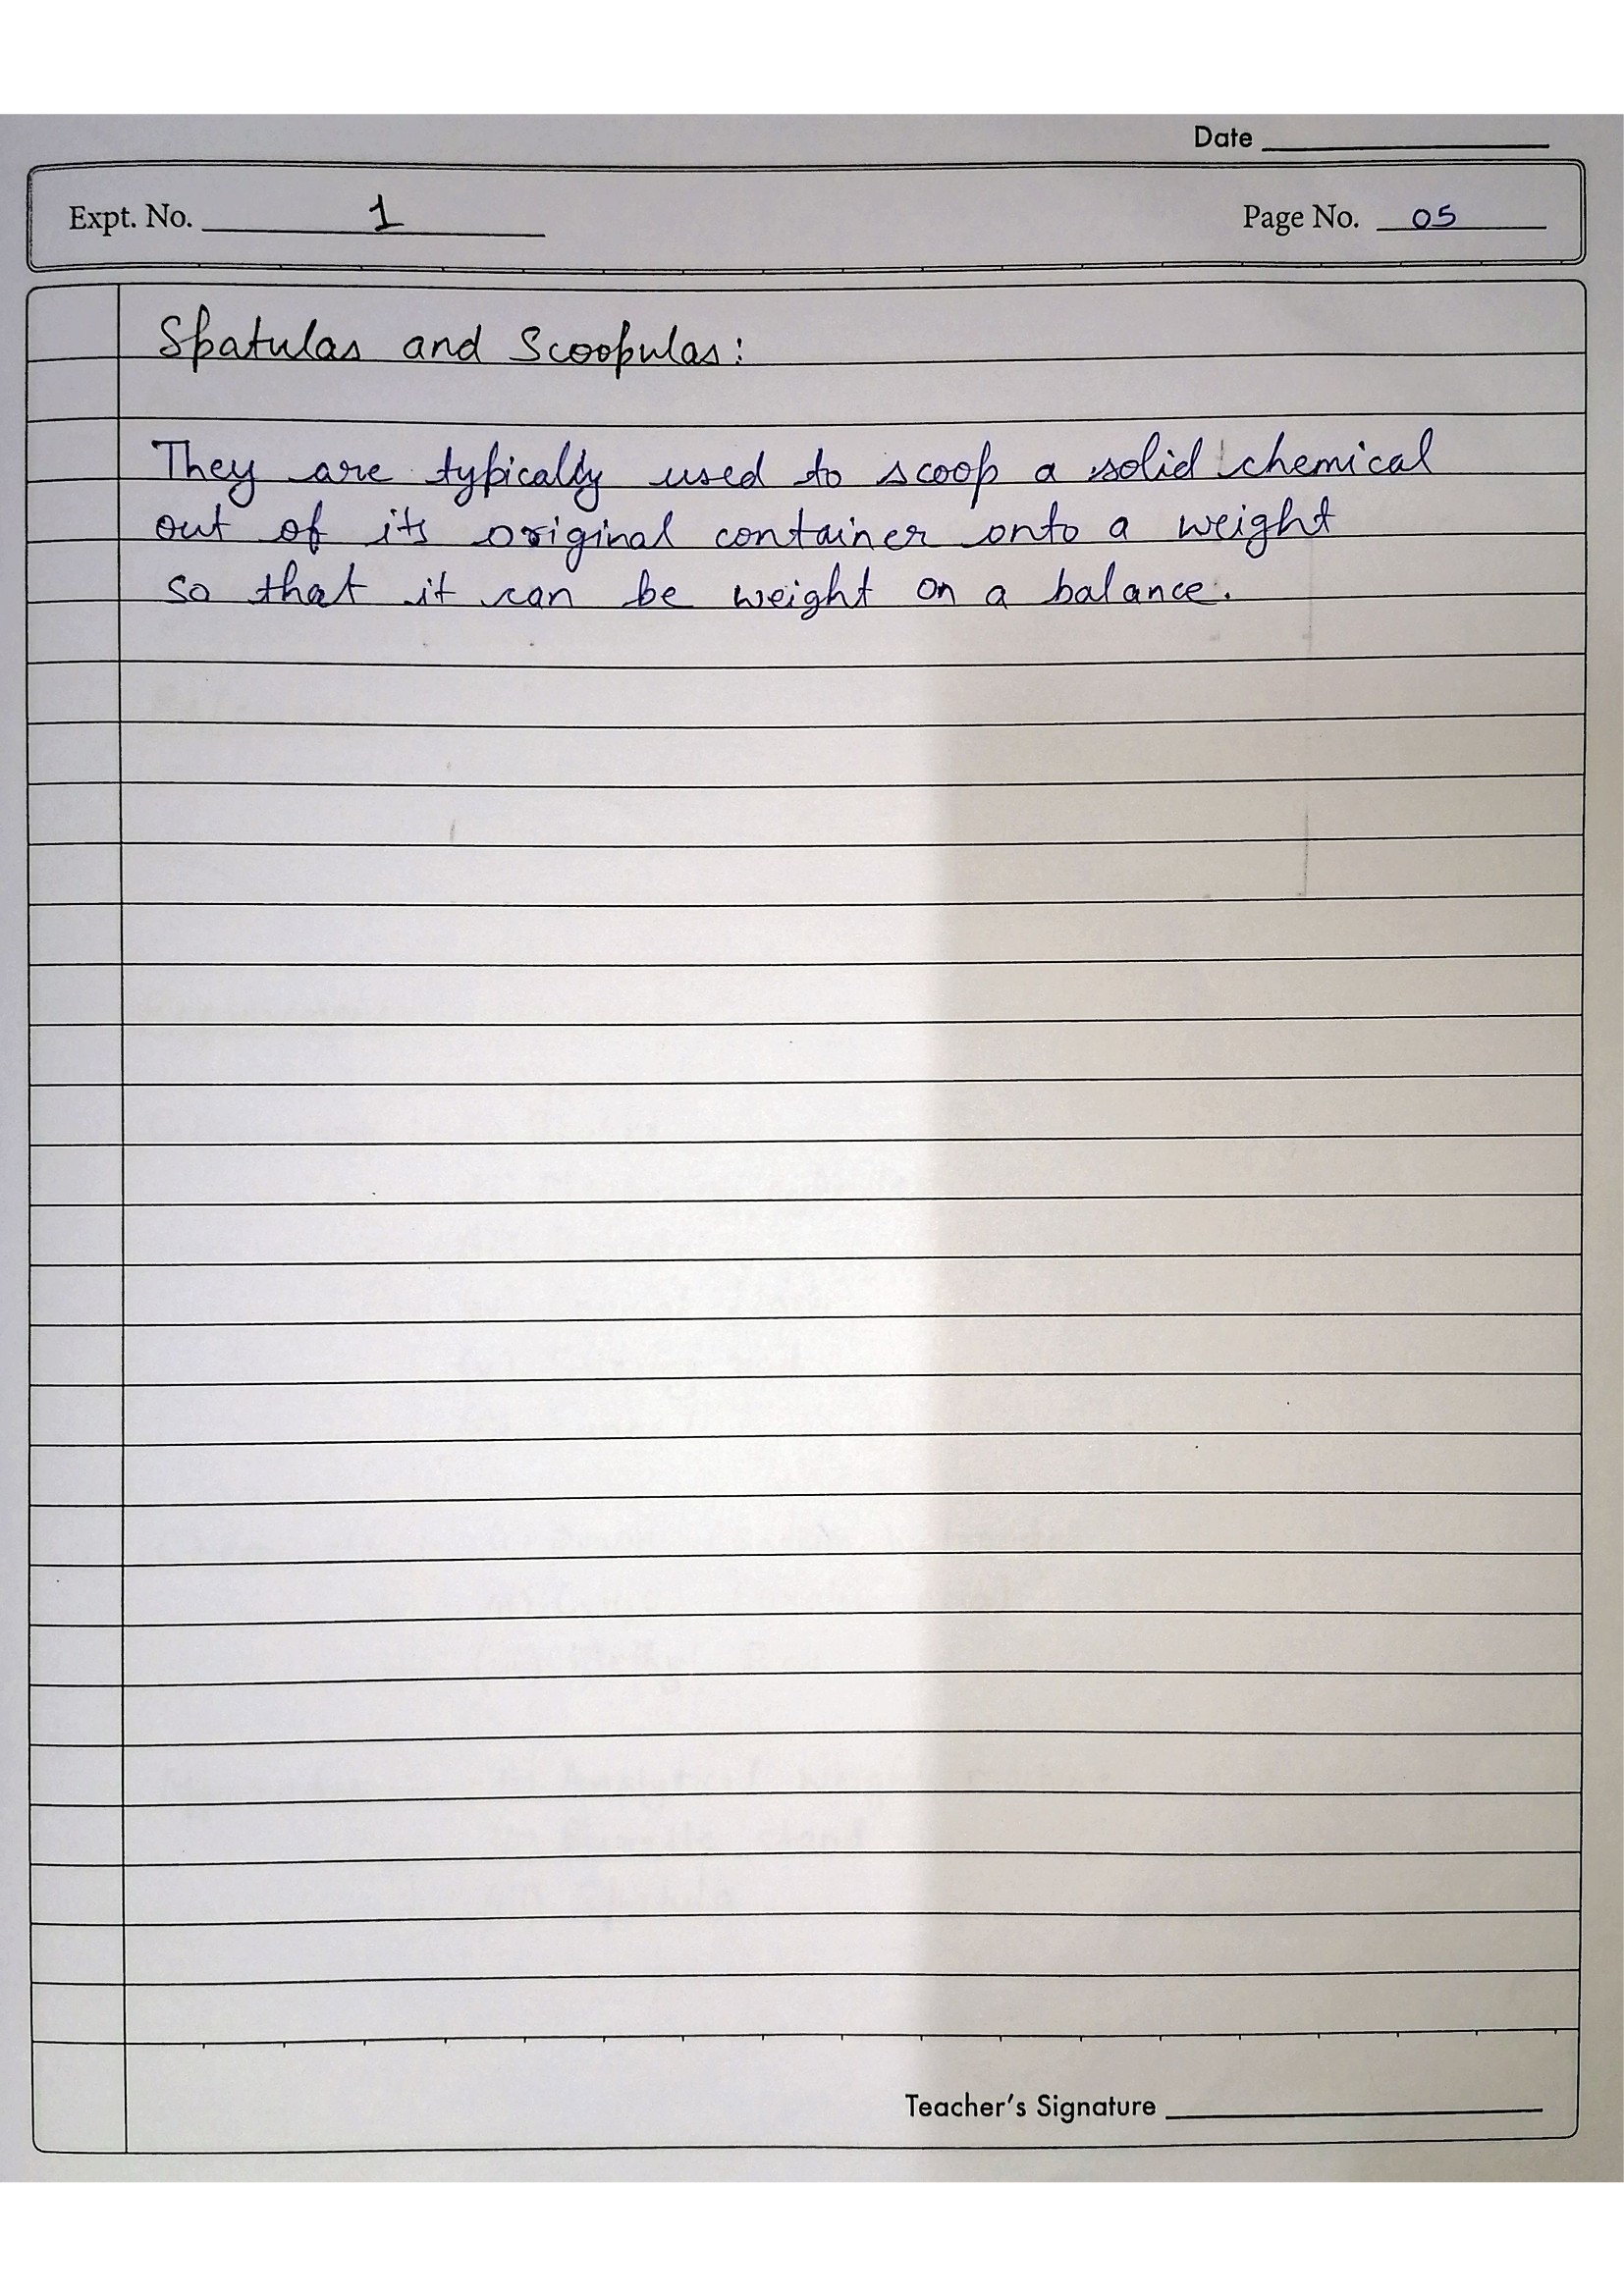 Date
Expt. No. 1 Page No. 05
Spatulas and Scoopulas:
They are typically used to scoop a solid chemical
out of its original container onto a weight
so that it can be weight on a balance.
Teacher's Signature